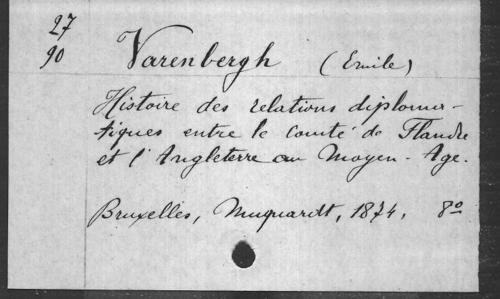 27
90
Varenbergh (Emile)
Histoire des relations diploma-
tiques entre le comté de Flandre
et l'Angleterre au Moyen-Age.
Bruxelles, Muquardt, 1874, 8º